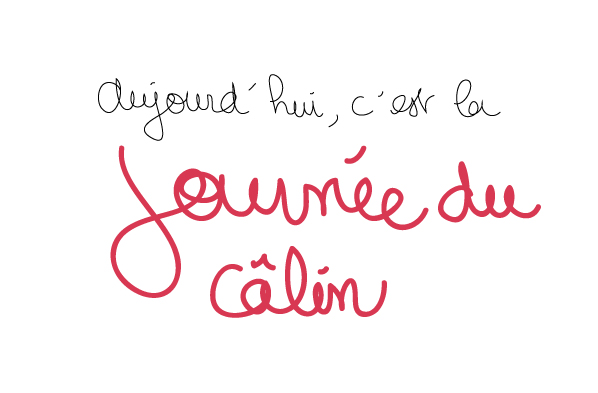 aujourd'hui, c'est la
Journée du
câlin